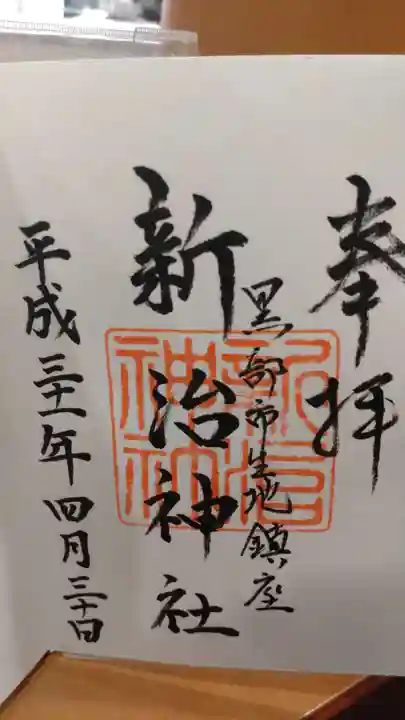 奉拝
黒部市生地鎮座
新治神社
平成三十一年四月三十日
新治
神社